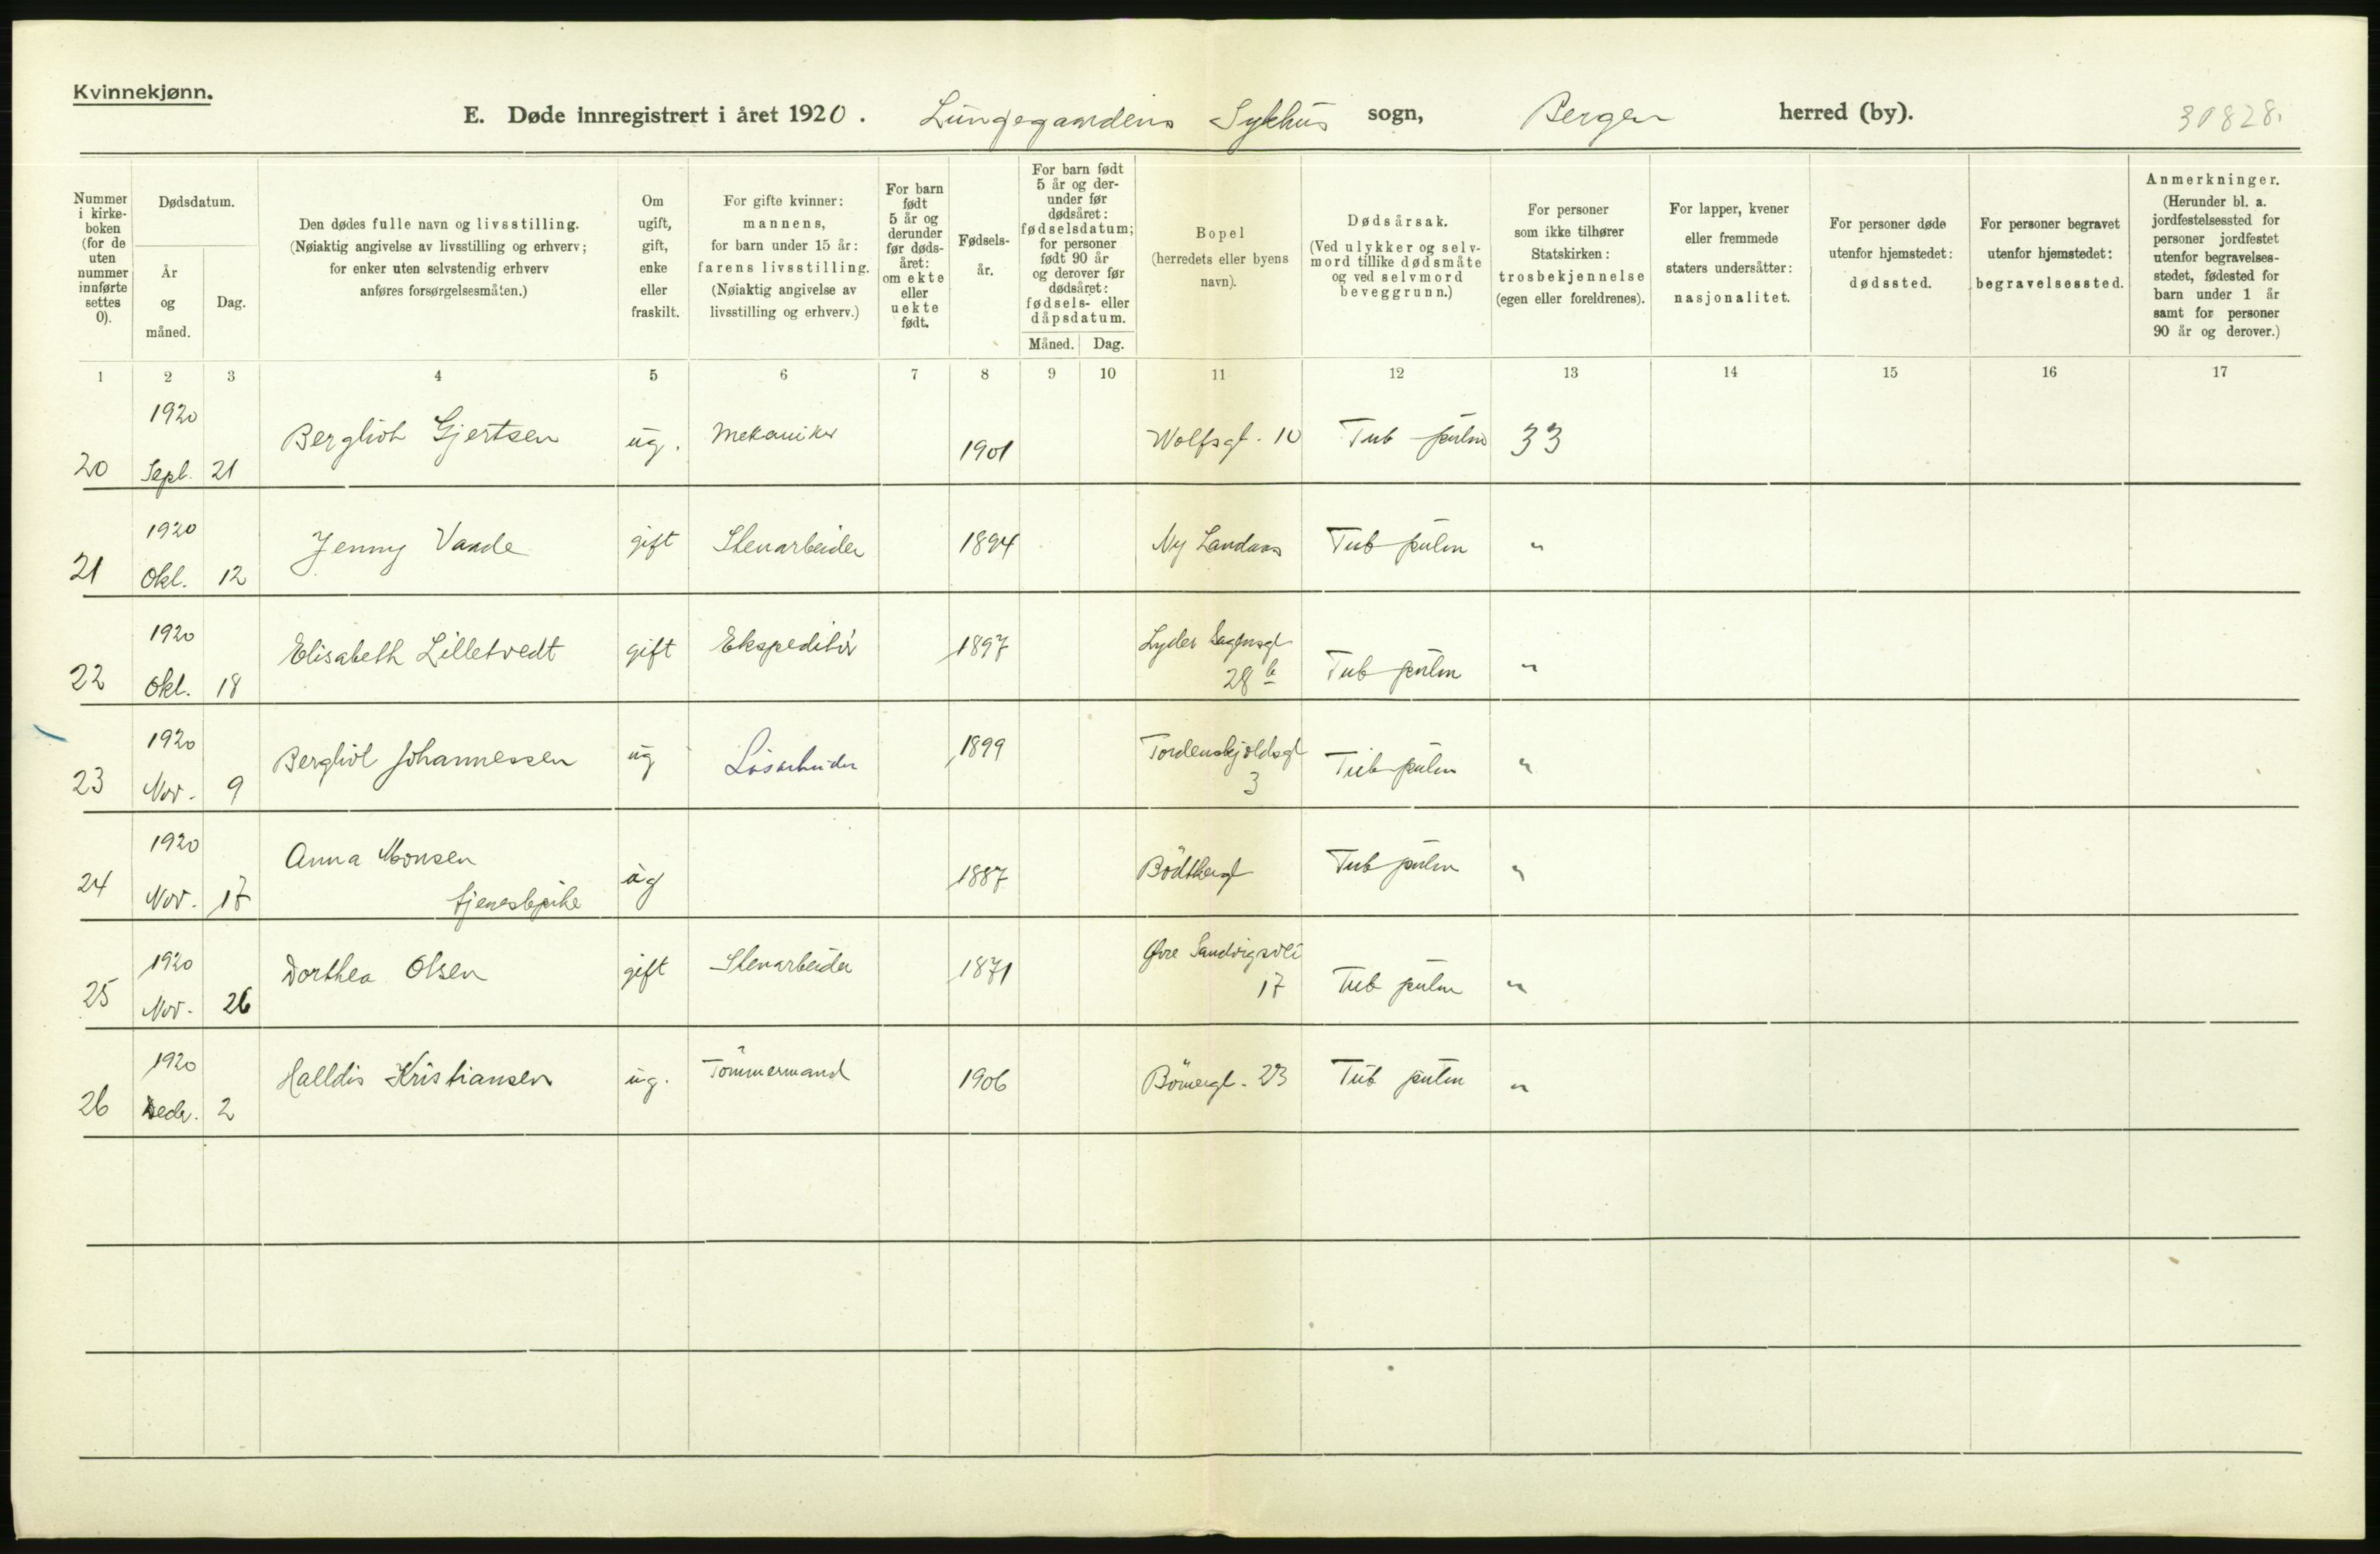 Kvinnekjønn.
E. Døde innregistrert i året 1920. Lungegaardens Sykhus sogn, Bergen herred (by). 30828.
Nummer i kirke- boken (for de uten nummer innførte settes 0).
Dødsdatum.
År og måned.
Dag.
Den dødes fulle navn og livsstilling.
(Nøiaktig angivelse av livsstilling og erhverv;
for enker uten selvstendig erhverv
anføres forsørgelsesmåten.)
Om ugift, gift, enke eller fraskilt.
For gifte kvinner:
mannens,
for barn under 15 år:
farens livsstilling.
(Nøiaktig angivelse av
livsstilling og erhverv.)
For barn født 5 år og derunder før døds- året: om ekte eller uekte født.
Fødsels- år.
For barn født 5 år og der- under før dødsåret: fødselsdatum; for personer født 90 år og derover før dødsåret: fødsels- eller dåpsdatum.
Måned. Dag.
Bopel
(herredets eller byens
navn).
Dødsårsak.
(Ved ulykker og selv-
mord tillike dødsmåte
og ved selvmord
beveggrunn.)
For personer
som ikke tilhører
Statskirken:
trosbekjennelse
(egen eller foreldrenes).
For lapper, kvener
eller fremmede
staters undersåtter:
nasjonalitet.
For personer døde
utenfor hjemstedet:
dødssted.
For personer begravet
utenfor hjemstedet:
begravelsessted.
Anmerkninger.
(Herunder bl. a.
jordfestelsessted for
personer jordfestet
utenfor begravelses-
stedet, fødested for
barn under 1 år
samt for personer
90 år og derover.)
1 2 3 4 5 6 7 8 9 10 11 12 13 14 15 16 17
20 1920 Sept. 21 Bergliot Gjertsen ug. Mekaniker 1901 Wolfsgt. 10 Tub pulm 33
21 1920 Okt. 12 Jenny Vaade gift Stenarbeider 1894 Ny Landaas Tub pulm "
22 1920 Okt. 18 Elisabeth Lilletvedt gift Ekspeditör 1897 Lyder Sagensgt 28 b Tub pulm "
23 1920 Nov. 9 Bergliot Johannessen ug Løsarbeider 1899 Tordenskjoldsgt 3 Tub pulm "
24 1920 Nov. 17 Anna Monsen tjenestepike ug 1887 Bödtkergt Tub pulm "
25 1920 Nov. 26 Dorthea Olsen gift Stenarbeider 1871 Øvre Sandvigsvei 17 Tub pulm "
26 1920 Decbr. 2 Halldis Kristiansen ug. Tömmermand 1906 Bömergt. 23 Tub pulm "